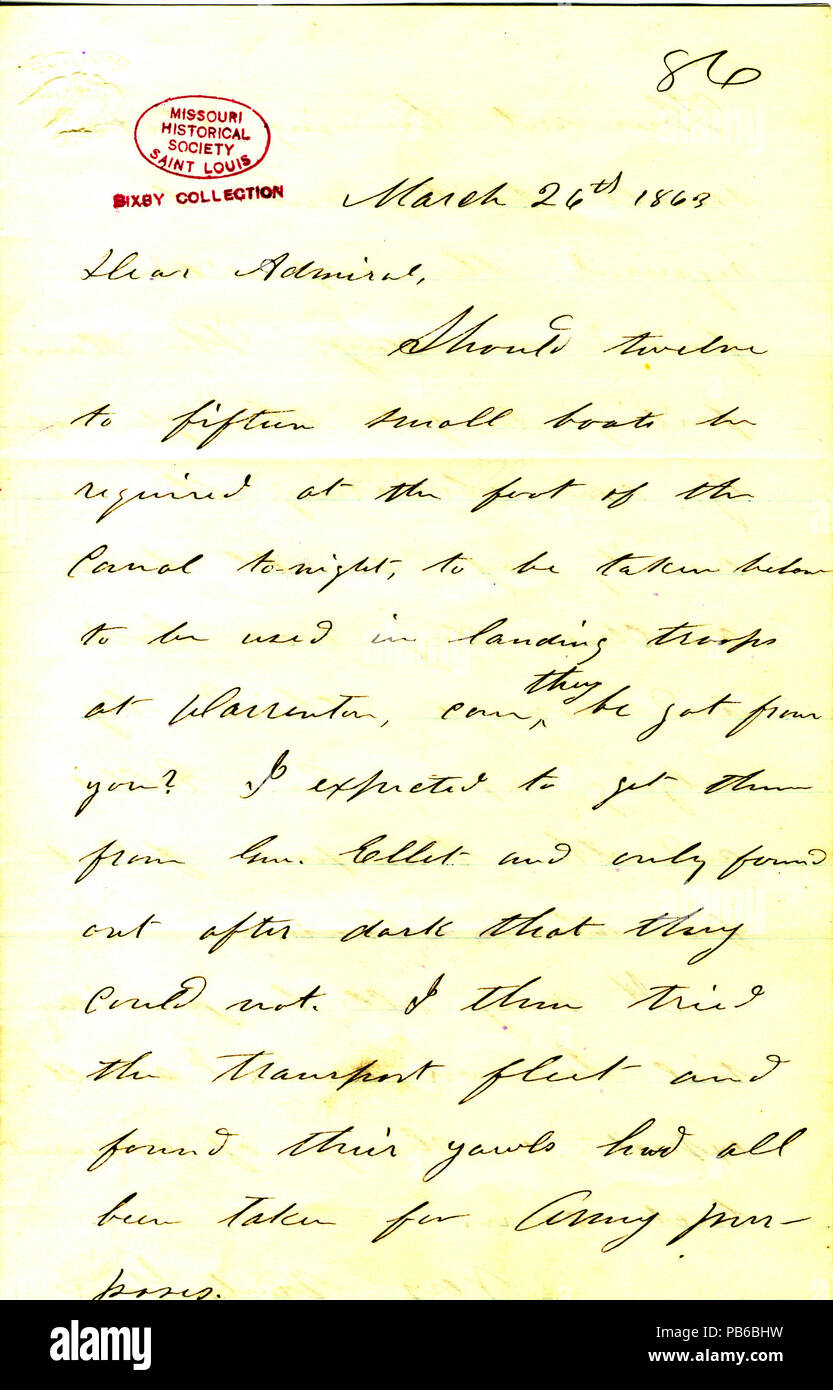 86
MISSOURI
HISTORICAL
SOCIETY
SAINT LOUIS
BIXBY COLLECTION
March 26th 1863
Dear Admiral,
Should twelve
to fifteen small boats be
required at the foot of the
Canal to-night, to be taken below
to be used in landing troops
at Warrenton, can they be got from
you? I expected to get them
from Gen. Ellet and only found
out after dark that they
could not. I then tried
the transport fleet and
found their yawls had all
been taken for Army pur-
poses.
alamy
Image ID: PB6BHW
www.alamy.com